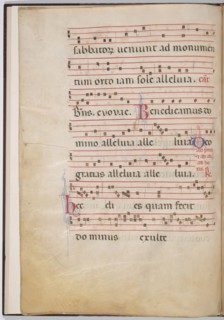 sabbatorum veniunt ad monumen
tum orto iam sole alleluia.
euovae. Benedicamus do
mino alleluia alle luia Deo
gratias alleluia alle luia.
Hec di es quam fecit
do minus exulte